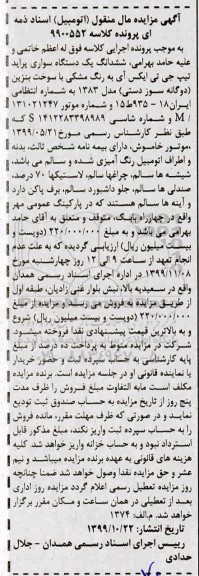 آگهی مزایده مال منقول (اتومبیل) اسناد ذمه
ای پرونده کلاسه ۹۹۰۰۵۵۲
به موجب پرونده اجرایی کلاسه فوق له اعظم خاتمی و
علیه حامد بهرامی، ششدانگ یک دستگاه سواری پراید
تیپ جی تی ایکس آی به رنگ مشکی با سوخت بنزین
(دوگانه سوز دستی) مدل ۱۳۸۳ به شماره انتظامی
ایران۱۸ – ۹۳۵ط۱۵ و شماره موتور ۱۳۱۰۲۱۲۴۷
/ M و شماره شاسی S ۱۴۱۲۲۸۳۳۹۸۹۸۹ که
طبق نظر کارشناس رسمی مورخ۱۳۹۹/۰۵/۲۱
،موتور خاموش، دارای بیمه نامه شخص ثالث، بدنه
و اطراف اتومبیل رنگ آمیزی شده و سالم می باشد،
شیشه ها سالم، چراغها سالم، لاستیکها ۷۰ درصد،
صندلی ها سالم، جلو داشبورد سالم، برف پاکن دارد
و آینه ها سالم هستند که در پارکینگ عمومی مهر
واقع در چهارراه پاسک، متوقف و متعلق به آقای حامد
بهرامی می باشد و به مبلغ ۲۲۰/۰۰۰/۰۰۰ (دویست و
بیست میلیون ریال) ارزیابی گردیده که به علت عدم
انجام تعهد از ساعت ۹ الی ۱۲ روز چهارشنبه مورخ
۱۳۹۹/۱۱/۰۸ در اداره اجرای اسناد رسمی همدان
واقع در سعیدیه بالا، نبش بلوار غنی زادیان، طبقه اول
از طریق مزایده به فروش می رسد. مزایده از مبلغ
۲۲۰/۰۰۰/۰۰۰ (دویست و بیست میلیون ریال) شروع
و به بالاترین قیمت پیشنهادی نقدا فروخته میشود.
شرکت در مزایده منوط به پرداخت ده درصد از مبلغ
پایه کارشناسی به حساب سپرده ثبت و حضور خریدار
یا نماینده قانونی او در جلسه مزایده است. برنده مزایده
مکلف است مابه التفاوت مبلغ فروش را ظرف مدت
پنج روز از تاریخ مزایده به حساب صندوق ثبت تودیع
نماید و در صورتی که ظرف مهلت مقرر، مانده فروش
را به حساب سپرده ثبت واریز نکند، مبلغ مذکور قابل
استرداد نبود و به حساب خزانه واریز خواهد شد. کلیه
هزینه های قانونی به عهده برنده مزایده میباشد و نیم
عشر و حق مزایده نقدا وصول خواهد شد ضمنا چنانچه
روز مزایده تعطیل رسمی اعلام گردد مزایده روز اداری
بعد از تعطیلی در همان ساعت و مکان مقرر برگزار
خواهد شد. م.الف: ۱۳۷۴
تاریخ انتشار: ۱۳۹۹/۱۰/۲۲
رییس اجرای اسناد رسمی همدان - جلال
حدادی